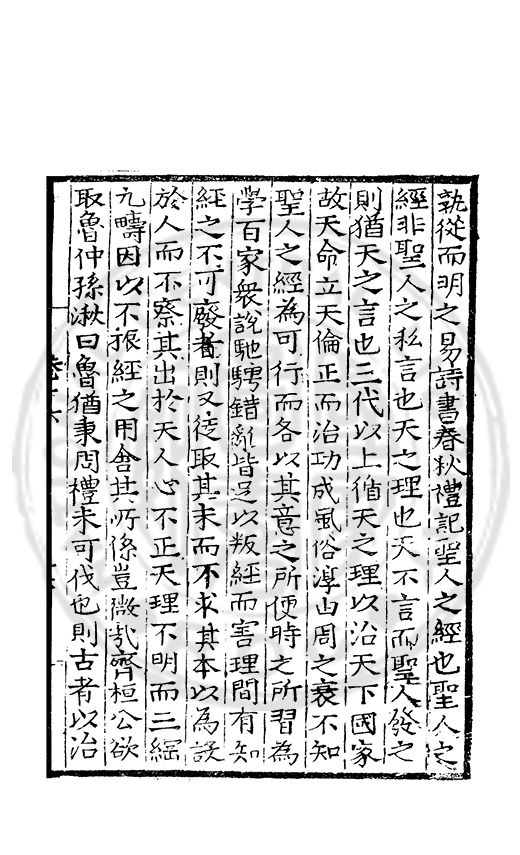 孰從而明之易詩書春秋禮記聖人之經也聖人之
經非聖人之私言也天之理也天不言而聖人發之
則猶天之言也三代以上循天之理以治天下國家
故天命立天倫正而治功成風俗淳由周之衰不知
聖人之經為可行而各以其意之所便時之所習為
學百家衆說馳騖錯亂皆足以叛經而害理間有知
經之不可廢者則又徒取其末而不求其本以為設
於人而不察其出於天人心不正天理不明而三綱
九疇因以不振經之用舍其所係豈微哉齊桓公欲
取魯仲孫湫曰魯猶秉周禮未可伐也則古者以治